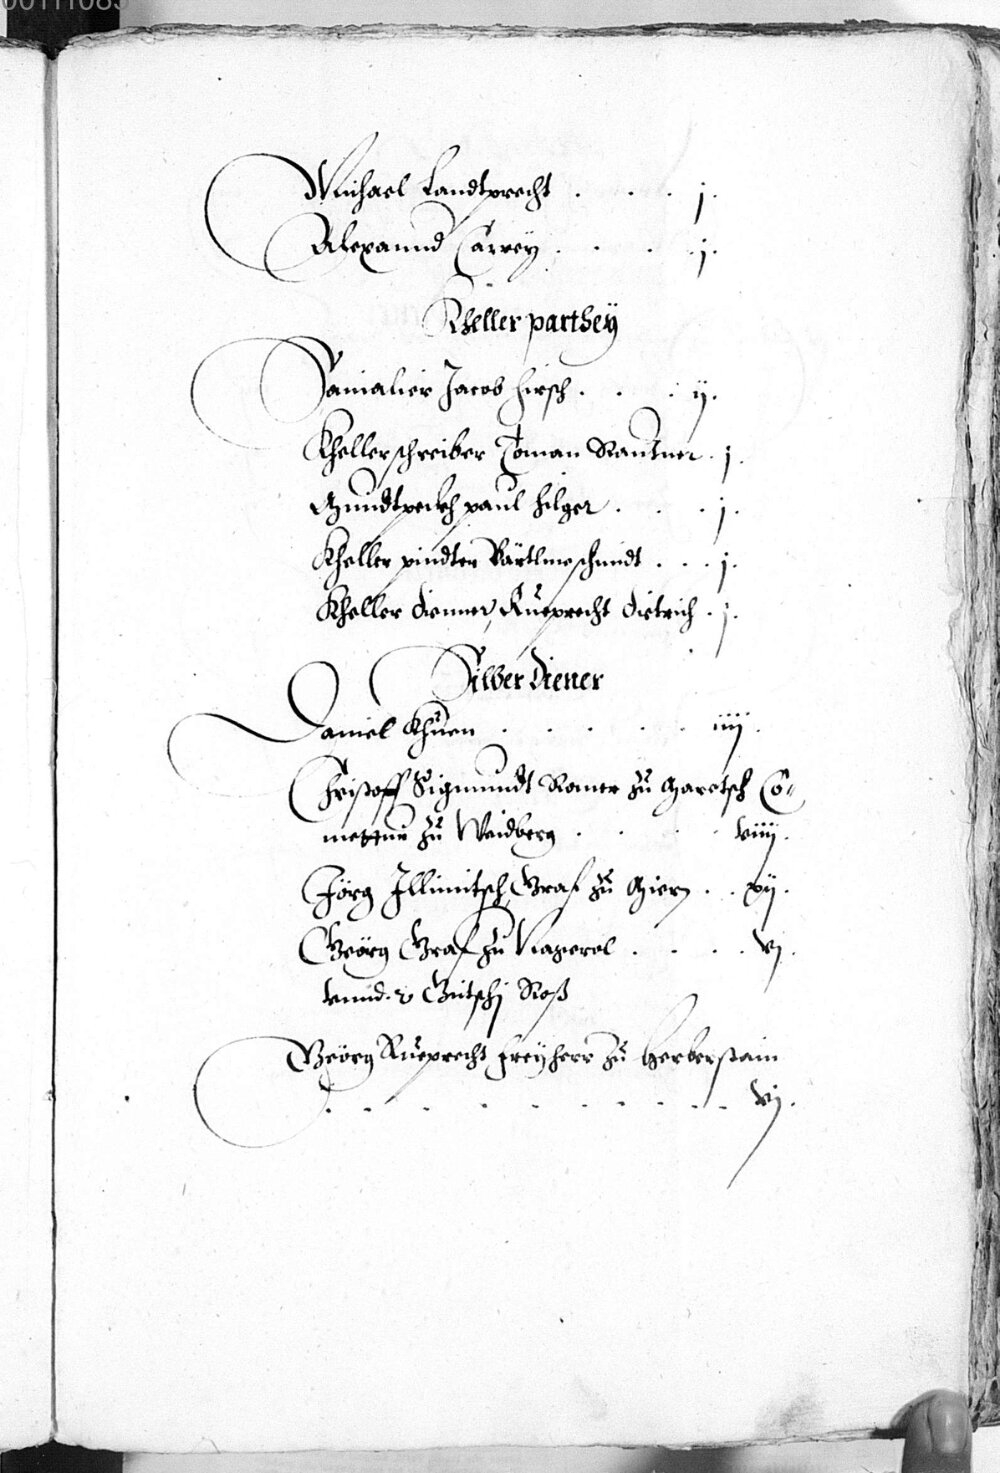 Michael Landtprecht . . . j.
Alexannd Carrey . . . . j.
Kheller parthey
Samalier Jacob Hirsch . . . ij.
Khellerschreiber Toman Rautner . j.
Mundtpeckh paul Hilger . . . j.
Kheller pindter Bärtlme schmidt . . . j.
Kheller diener, Rueprecht dietrich . j.
Silber Diener
Daniel Khuen . . . . . iiij.
Christoff Sigmundt Romer zu Maretsch Co-
mettur zu Waidberg . . . . viiij.
Jörg Illimitsch Graf zu . . xij.
Geörg Graf zu Nagerol . . . . vj.
vnnd. 2 Gutschj Roß
Geörg Rueprecht Freyherr zu Herberstain
. . . . . . . . . vj.